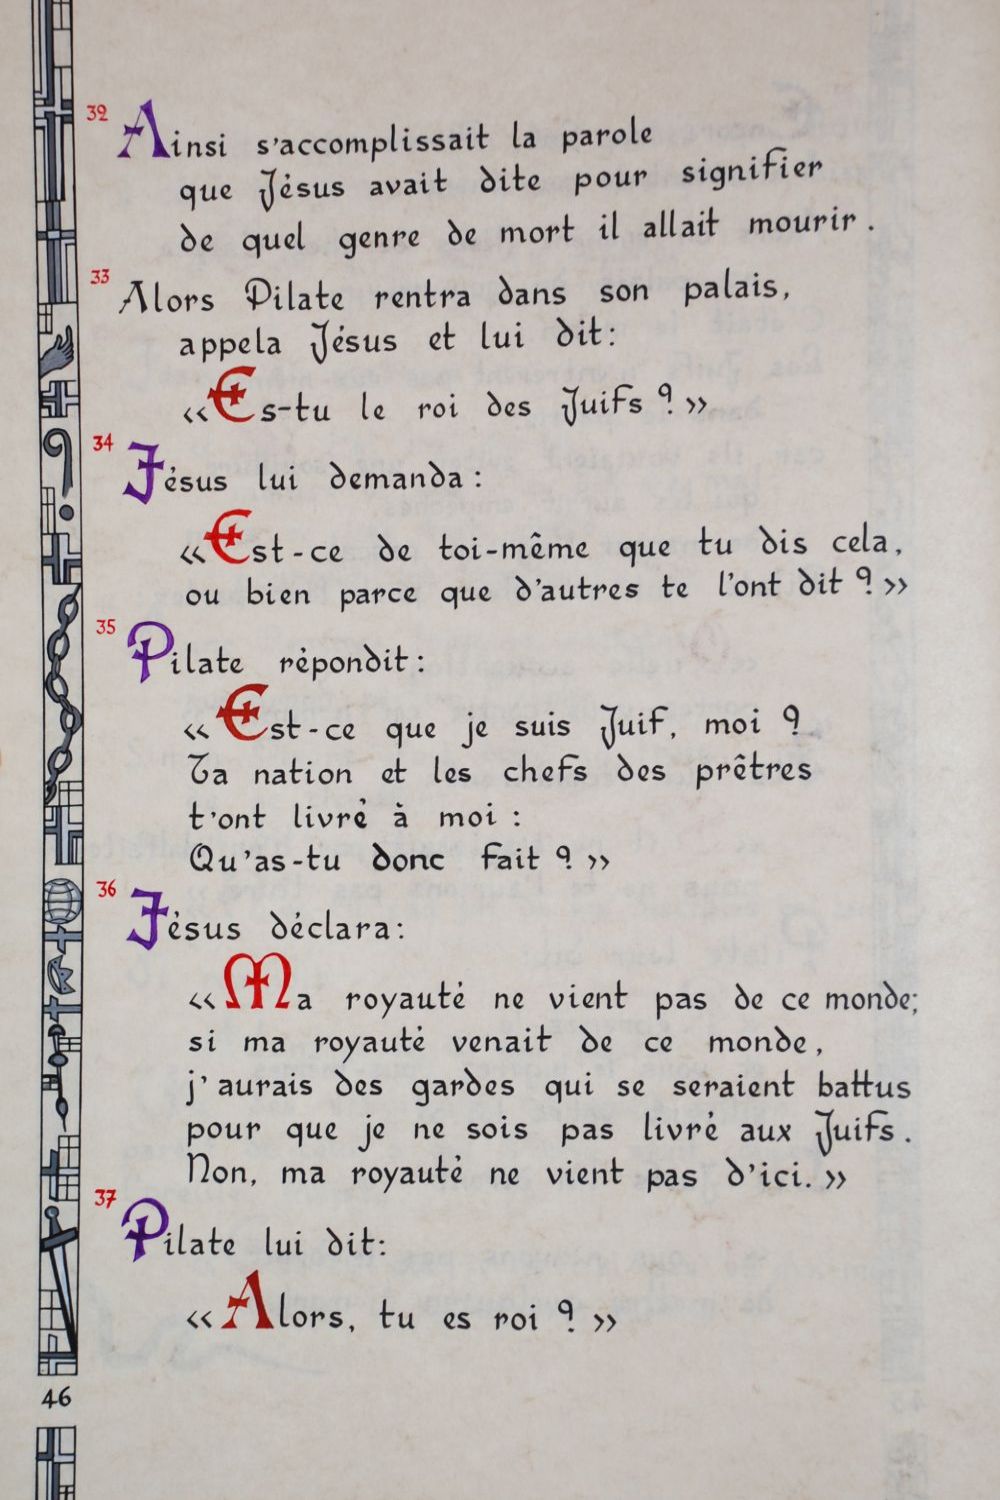 32
Ainsi s'accomplissait la parole
que Jésus avait dite pour signifier
de quel genre de mort il allait mourir.
33
Alors Pilate rentra dans son palais,
appela Jésus et lui dit:
«Es-tu le roi des Juifs ?»
34
Jésus lui demanda:
«Est-ce de toi-même que tu dis cela,
ou bien parce que d'autres te l'ont dit ?»
35
Pilate répondit:
«Est-ce que je suis Juif, moi ?
Ta nation et les chefs des prêtres
t'ont livré à moi :
Qu'as-tu donc fait ?»
36
Jésus déclara:
«Ma royauté ne vient pas de ce monde;
si ma royauté venait de ce monde,
j'aurais des gardes qui se seraient battus
pour que je ne sois pas livré aux Juifs.
Non, ma royauté ne vient pas d'ici.»
37
Pilate lui dit:
«Alors, tu es roi ?»
46